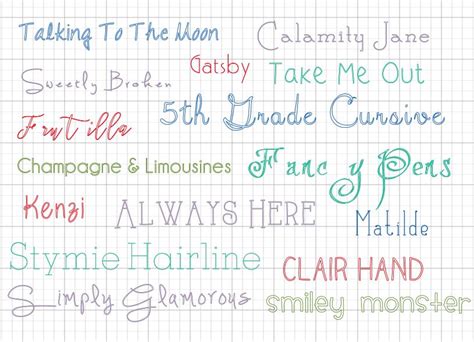 Talking To The Moon
Calamity Jane
Gatsby
Take Me Out
Sweetly Broken
5th Grade Cursive
Frutilla
Champagne & Limousines
Fancy Pens
Kenzi
ALWAYS HERE
Matilde
Stymie Hairline
CLAIR HAND
Simply Glamorous
smiley monster